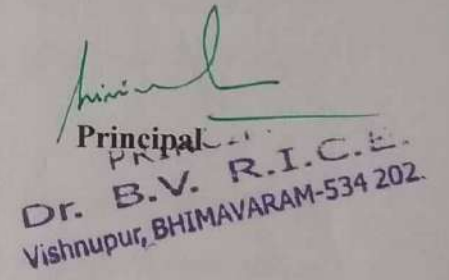 Principal
PRINCIPAL
Dr. B.V. R.I.C.E.
Vishnupur, BHIMAVARAM-534 202.